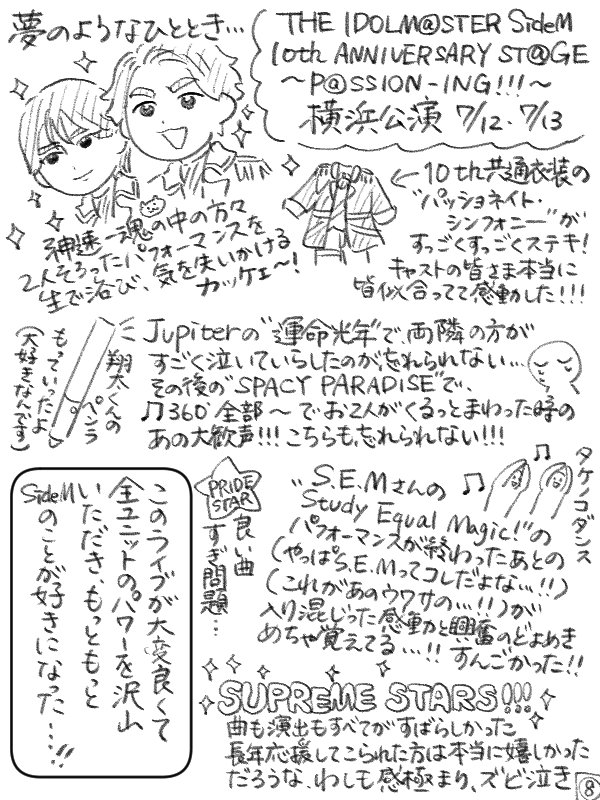 夢のようなひととき…
THE IDOLM@STER SideM
10th ANNIVERSARY ST@GE
～P@SSION-ING!!!～
横浜公演 7/12・7/13
神速一魂の中の方々
2人そろったパフォーマンスを
生で浴び、気を使いかける
カッケェ～!
←10th共通衣装の
"パッショネイト・
シンフォニー"が
すっごくすっごくステキ!
キャストの皆さま本当に
皆似合ってて感動した!!!
Jupiterの"運命光年"で、両隣の方が
すごく泣いていらしたのが忘れられない…
その後の"SPACY PARADISE"で、
♫360°全部～でお2人がくるっとまわった時の
あの大歓声!!!こちらも忘れられない!!!
翔太くんの
ペンラ
もっていったよ
(大好きなんです)
タケノコダンス
"S.E.Mさんの
Study Equal Magic!"の
パフォーマンスが終わったあとの
(やっぱS.E.Mってコレだよな…!!)
(これがあのウワサの…!!)が
入り混じった感動と興奮のどよめき
めちゃ覚えてる…!! すんごかった!!
PRIDE
STAR
良い曲
すぎ問題…
このライブが大変良くて
全ユニットのパワーを沢山
いただき、もっともっと
SideMのことが好きになった…!!
SUPREME STARS!!!
曲も演出もすべてがすばらしかった
長年応援してこられた方は本当に嬉しかった
だろうな、わしも感極まり、ズビ泣き
8